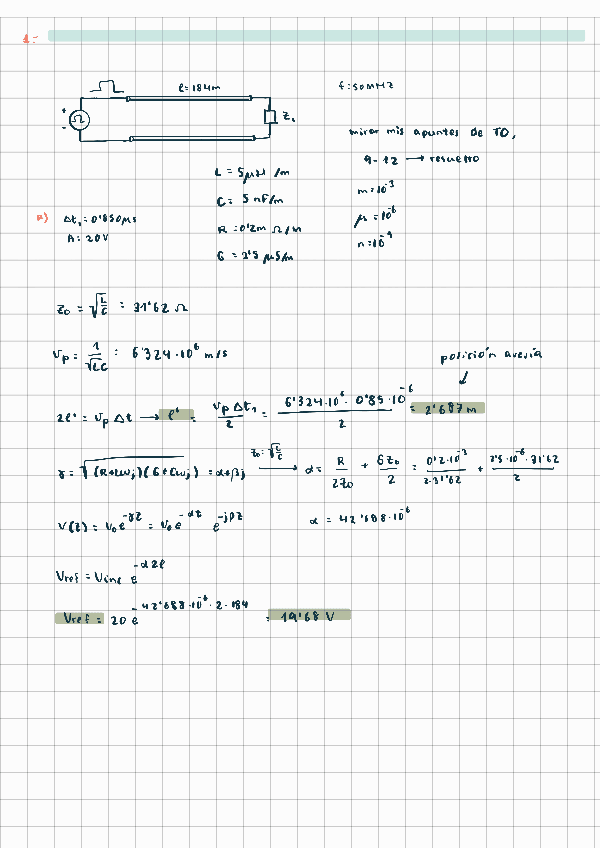 1:
l=184m
f: 50MHz
+
Ω
-
Z₁
mirar mis apuntes de TO,
9-12 → resuelto
L = 5μH /m
C = 5 nF/m
R = 0'2m Ω/m
G = 2'5 μS/m
m=10⁻³
μ = 10⁻⁶
n=10⁻⁹
a) Δt₁=0'850μs
A: 20V
Z₀ = √(L/C) = 31'62 Ω
Vp = 1/√(LC) = 6'324·10⁶ m/s
posición avería
2l' = Vp Δt → l' = VpΔt₁/2 = 6'324·10⁶ · 0'85·10⁻⁶/2 = 2'687m
γ = √((R+Lωj)(G+Cωj)) = α+βj Z₀=√(L/C) → α = R/2Z₀ + GZ₀/2 = 0'2·10⁻³/2·31'62 + 2'5·10⁻⁶·31'62/2
V(z) = V₀e^-γz = V₀e^-αz e^-jβz
α = 42'688·10⁻⁶
Vref = Vinc e^-α2l
Vref = 20 e^-42'688·10⁻⁶·2·184 = 19'68 V